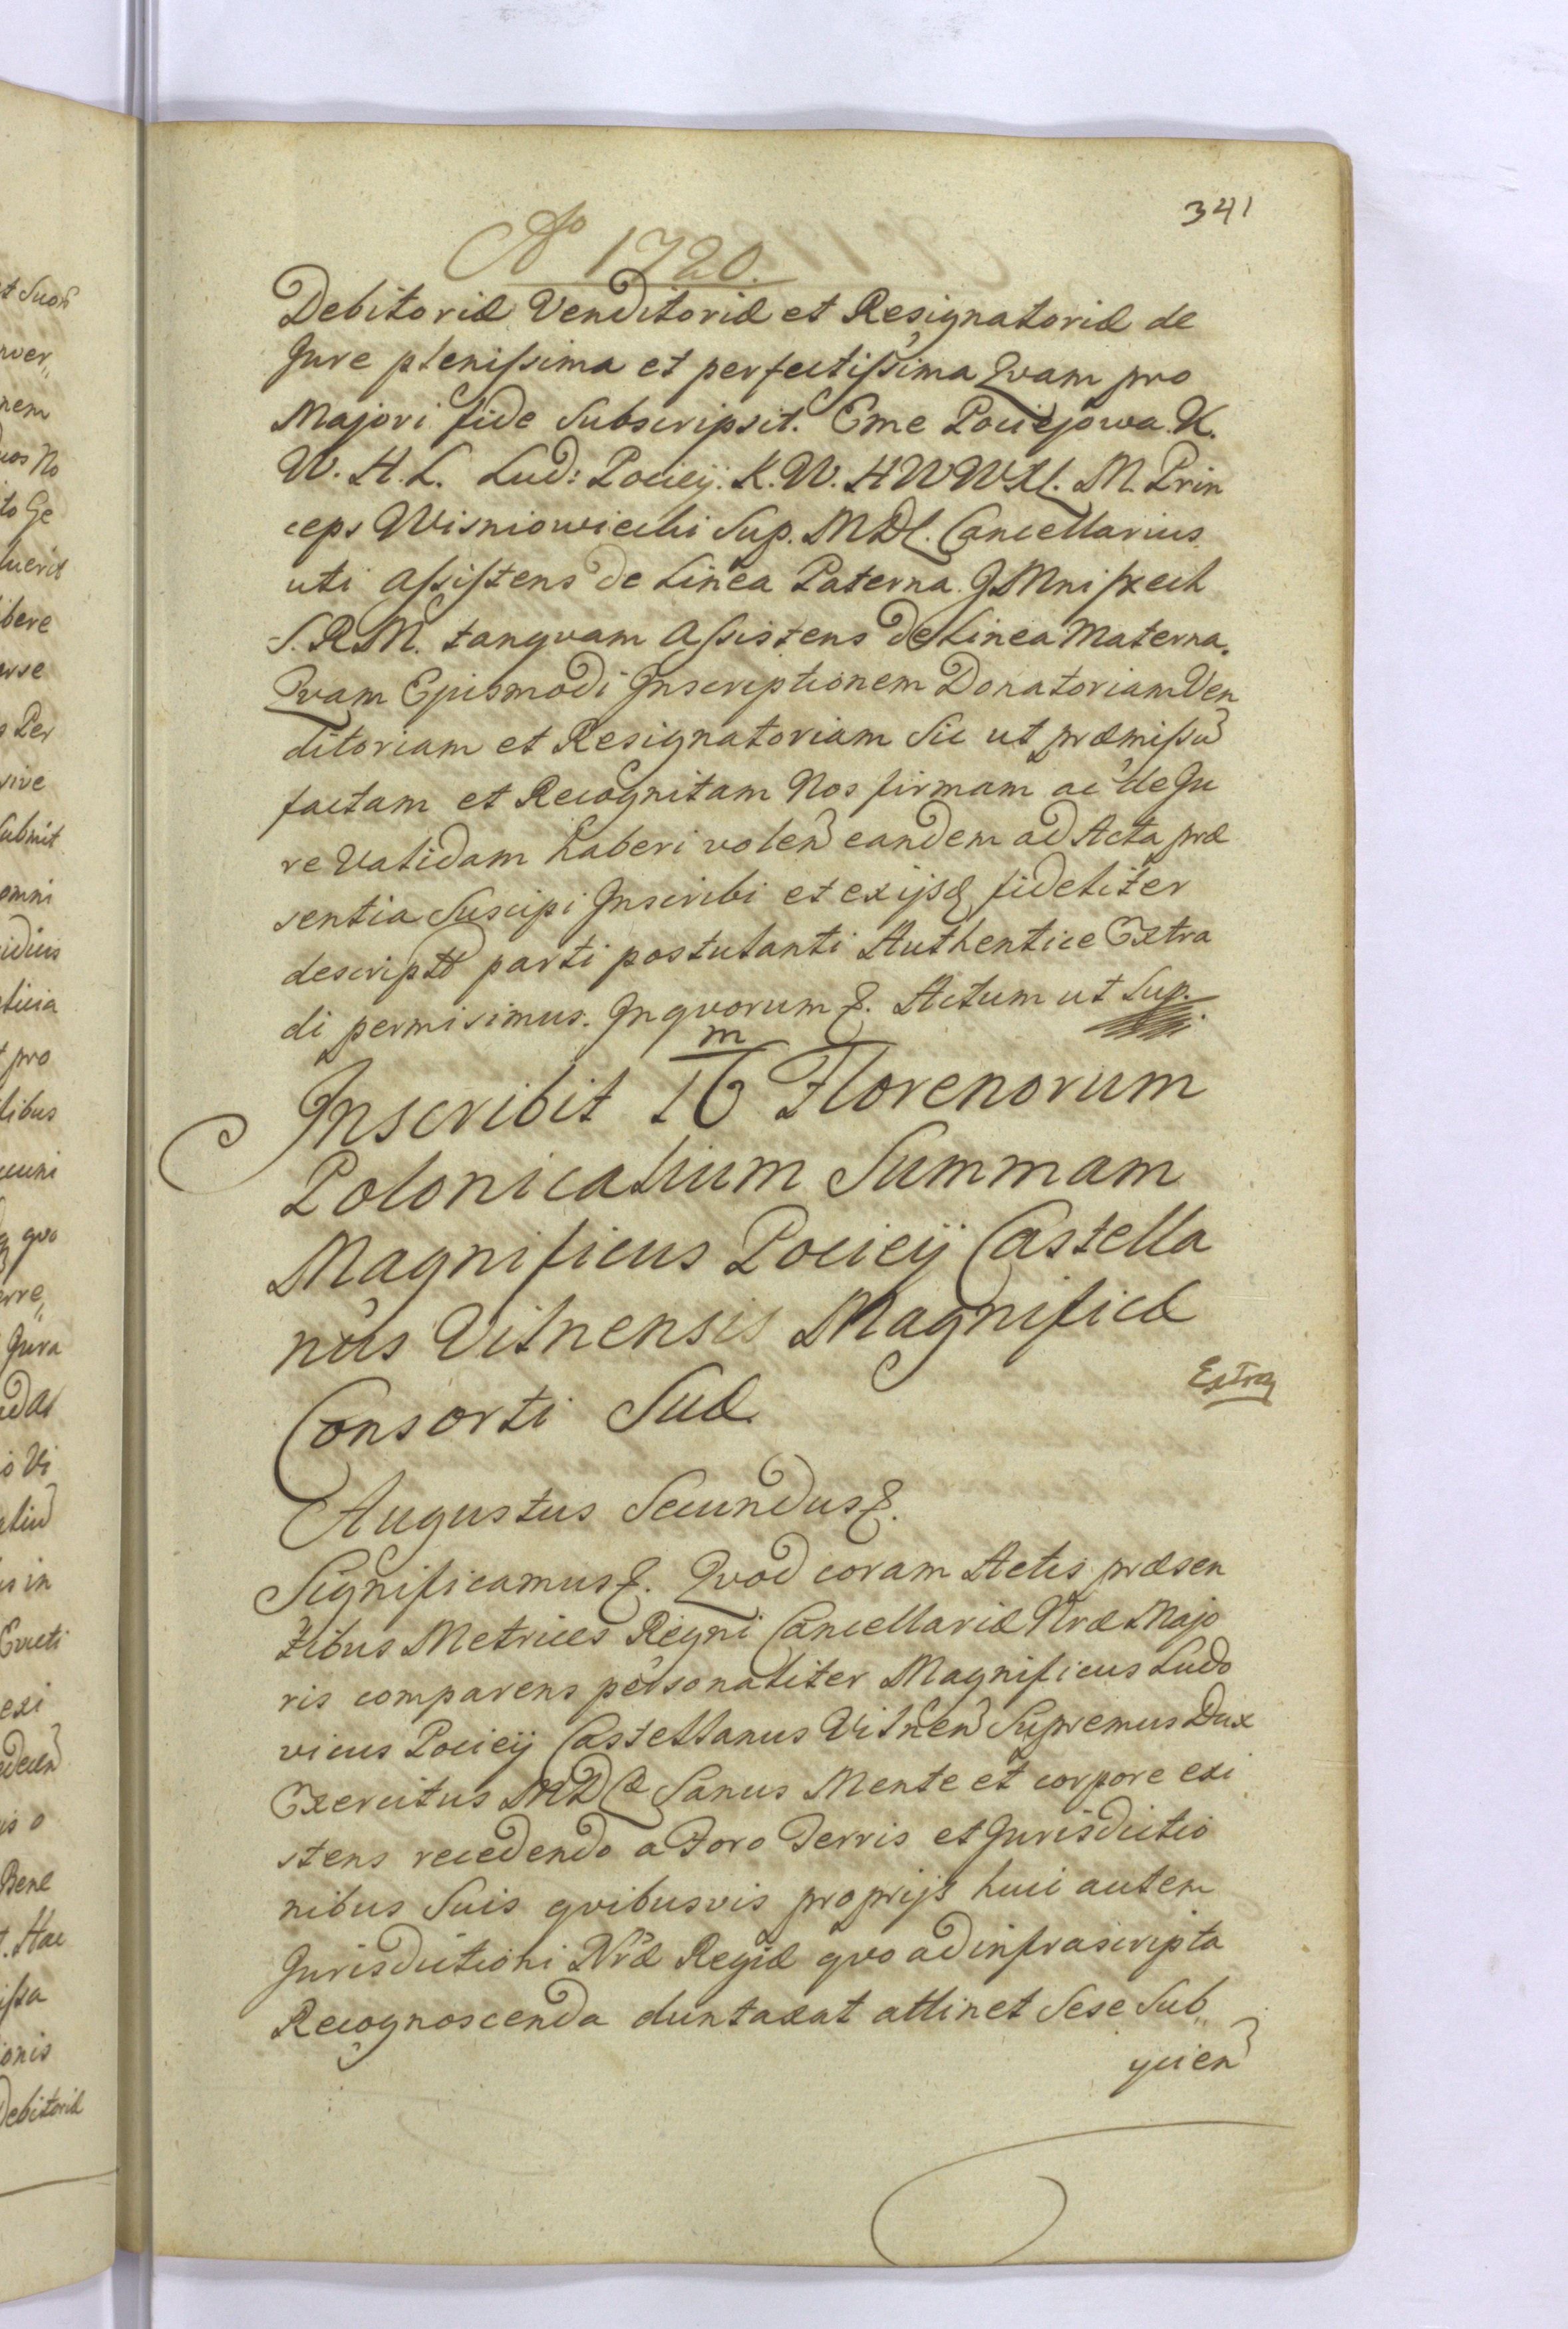 341
Ao 1720.
Debitoriæ Venditoriæ et Resignatoriæ de
Jure plenissima et perfectissima Qvam pro
Majori fide Subscripsit. Eme Pociejowa. K.
W. H. L. Lud: Pociey. K. W. H W W X L. M. Prin
ceps Wisniowiecki Sup. M D L. Cancellarius
uti Assistens de Linea Paterna. J Mniszech
S. R. M. tanqvam Assistens de Linea Materna.
Qvam Ejusmodi Inscriptionem Donatoriam Ven
ditoriam et Resignatoriam Sic ut præmissũ
factam et Recognitam Nos firmam ac de Ju
re Validam haberi volen eandem ad Acta præ
sentia Suscipi Inscribi et ex ijsq fideliter
descriptã parti postulanti Authentice Extra
di permisimus. In qvorum &. Actum ut Sup.
Inscribit 16 m Florenorum
Polonicalium Summam
Magnificus Pociey Castella
nus Vilnensis Magnificæ
Consorti Suæ.
Extra
Augustus Secundus &.
Significamus &. Qvod coram Actis præsen
tibus Metrices Regni Cancellariæ Nræ Majo
ris comparens personaliter Magnificus Ludo
vicus Pociey Castellanus Vilnen Supremus Dux
Exercitus M D L Sanus Mente et corpore exi
stens recedendo a Foro Terris et Jurisdictio
nibus Suis qvibusvis proprijs huic autem
Jurisdictioni Nræ Regiæ qvo ad infrascripta
Recognoscenda duntaxat attinet Sese Sub,,
jicien